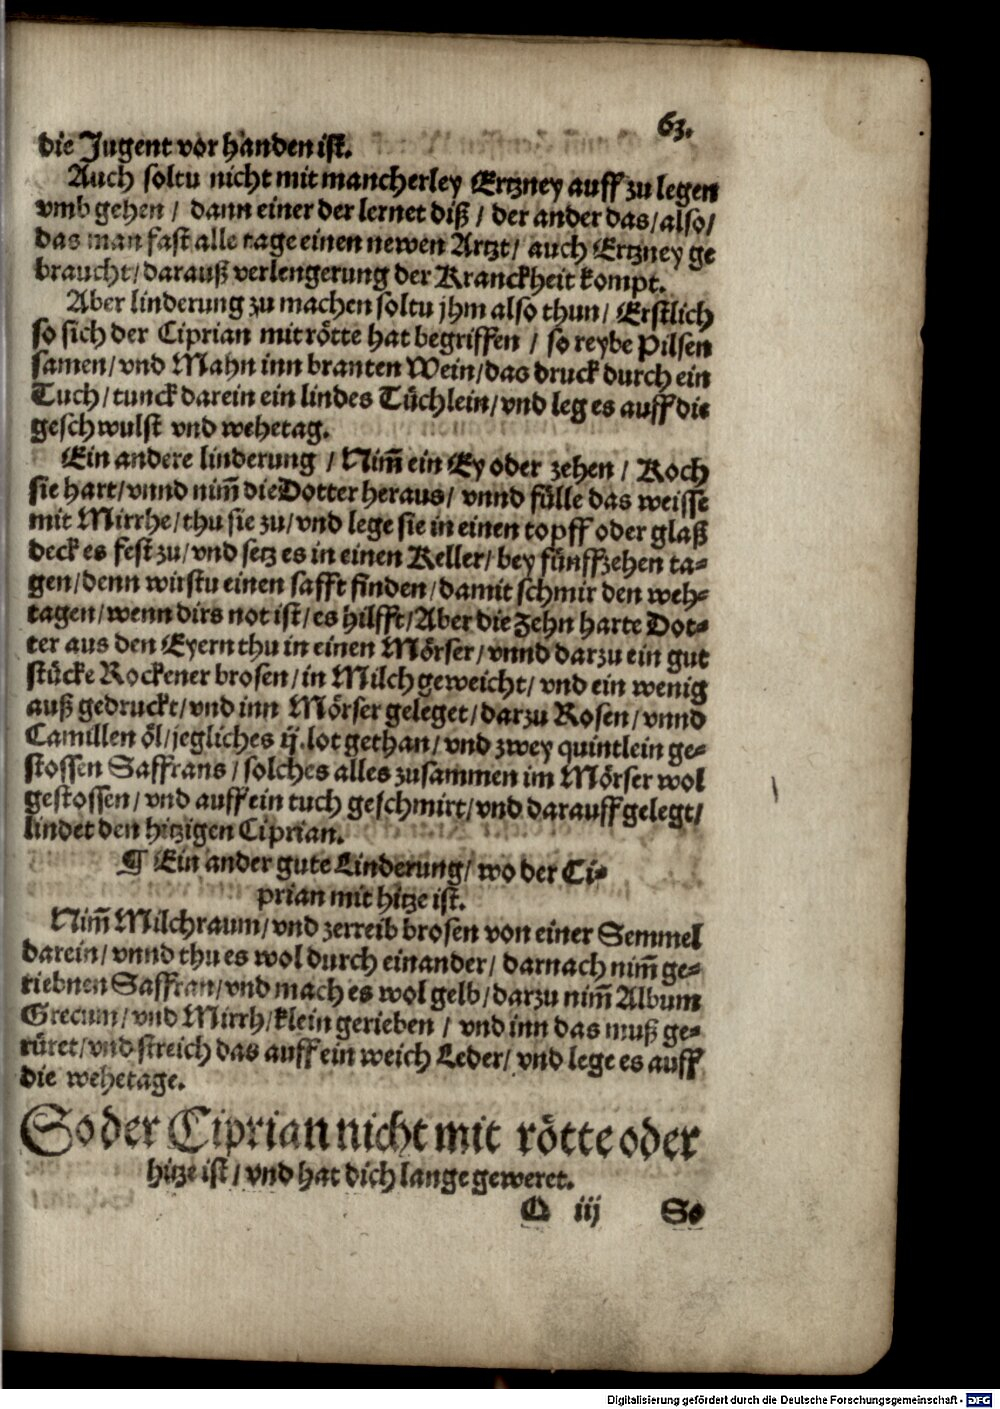 63.
die Jugent vor handen ist.
Auch soltu nicht mit mancherley Ertzney auff zu legen
vmb gehen / dann einer der lernet diß / der ander das/also/
das man fast alle tage einen newen Artzt/ auch Ertzney ge
braucht/darauß verlengerung der Kranckheit kompt.
Aber linderung zu machen soltu jhm also thun/ Erstlich
so sich der Ciprian mit rötte hat begriffen / so reybe Pilsen
samen/vnd Mahn inn branten Wein/das druck durch ein
Tuch/tunck darein ein lindes Tüchlein/vnd leg es auff die
geschwulst vnd wehetag.
Ein andere linderung / Nim̃ ein Ey oder zehen / Koch
sie hart/vnnd nim̃ die Dotter heraus/ vnnd fülle das weisse
mit Mirrhe/thu sie zu/vnd lege sie in einen topff oder glaß
deck es fest zu/vnd setz es in einen Keller/ bey fünffzehen ta-
gen/denn wirstu einen safft finden/damit schmir den weh-
tagen/wenn dirs not ist/es hilfft/Aber die Zehn harte Dot-
ter aus den Eyern thu in einen Mörser/vnnd darzu ein gut
stücke Rockener brosen/in Milch geweicht/ vnd ein wenig
auß gedruckt/vnd inn Mörser geleget/darzu Rosen/vnnd
Camillen öl/jegliches ij.lot gethan/vnd zwey quintlein ge-
stossen Saffrans/solches alles zusammen im Mörser wol
gestossen/vnd auff ein tuch geschmirt/vnd darauff gelegt/
lindet den hitzigen Ciprian.
¶ Ein ander gute Linderung/ wo der Ci-
prian mit hitze ist.
Nim̃ Milchraum/vnd zerreib brosen von einer Semmel
darein/vnnd thu es wol durch einander/ darnach nim̃ ge-
riebnen Saffran/vnd mach es wol gelb/darzu nim̃ Album
Grecum/vnd Mirrh/klein gerieben / vnd inn das muß ge-
rüret/vnd streich das auff ein weich Leder/ vnd lege es auff
die wehetage.
So der Ciprian nicht mit rötte oder
hitze ist/vnd hat dich lange geweret.
Q iij So
Digitalisierung gefördert durch die Deutsche Forschungsgemeinschaft - DFG